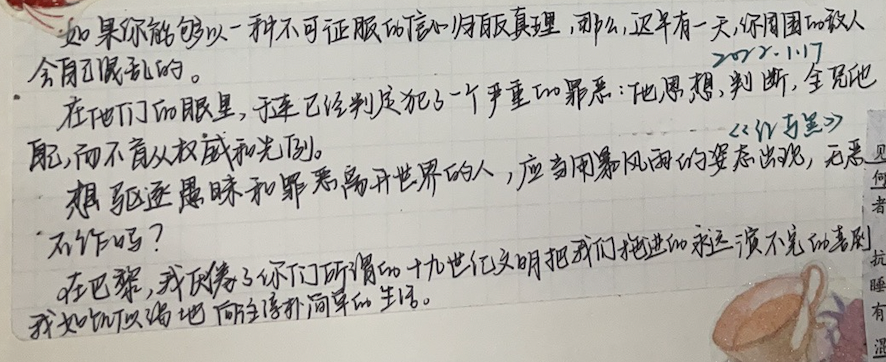 如果你能够以一种不可征服的信心归服真理,那么,迟早有一天,你周围的敌人
会自己混乱的。
2022.1.17
在他们的眼里,于连已经判定犯了一个严重的罪恶:他思想,判断,全凭他
自己,而不盲从权威和先例。
《红与黑》
想驱逐愚昧和罪恶离开世界的人,应当用暴风雨的姿态出现,无恶
不作吗?
在巴黎,我厌倦了你们所谓的十九世纪文明把我们拖进的永远演不完的喜剧
我如饥似渴地向往淳朴简单的生活。
见
何
者
抗
睡
有